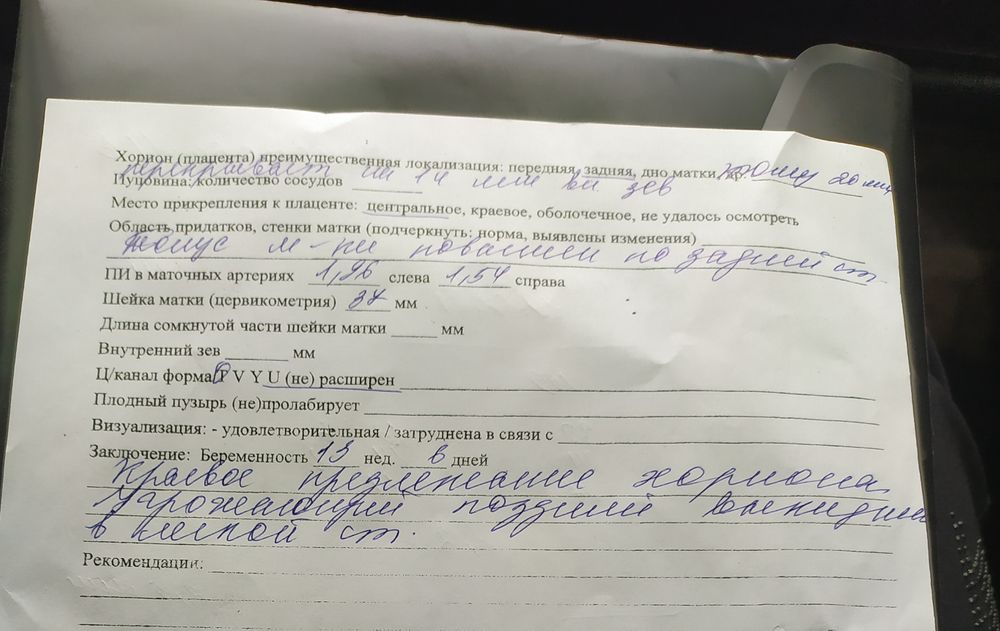 Хорион (плацента) преимущественная локализация: передняя, задняя, дно матки, др. толщ 20 мм
перекрывает на 14 мм вн зев
Пуповина: количество сосудов
Место прикрепления к плаценте: центральное, краевое, оболочечное, не удалось осмотреть
Область придатков, стенки матки (подчеркнуть: норма, выявлены изменения)
тонус м-ки повышен по задней ст
ПИ в маточных артериях 1,96 слева 1,54 справа
Шейка матки (цервикометрия) мм
Длина сомкнутой части шейки матки мм
Внутренний зев мм
Ц/канал форма T V Y U (не) расширен
Плодный пузырь (не)пролабирует
Визуализация: - удовлетворительная / затруднена в связи с
Заключение: Беременность 13 нед. 6 дней
Краевое предлежание хориона
Угрожающий поздний выкидыш
в легкой ст.
Рекомендации: